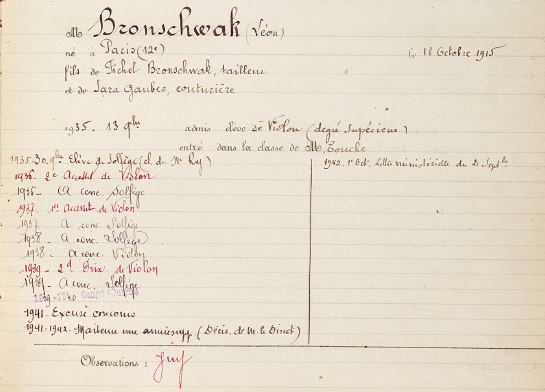 M Bronschwak (Léon)
né à Paris (12e) le 18 Octobre 1915
fils de Fichel Bronschwak, tailleur
et de Sara Gauber, couturière
1935. 13 9bre admis élève de Violon (degré Supérieur)
entré dans la classe de M. Touche
1935-30. 9bre Elève de Solfège (cl. de
1936. 2e Accessit de Violon
1936 - A conc. Solfège
1937. 1er Accessit de Violon
1937. A conc. Solfège
1938 - A conc. Solfège
1938. A conc. Violon
1939 - 2d Prix de Violon
1939 - A conc. Solfège
1939-1940
1941. Excusé concours
1941-1942. Maintenu une année supp (Décis. de M. le Direct)
1942. 1er Oct. Lettre ministérielle du 21 Septbre
Observations : Juif